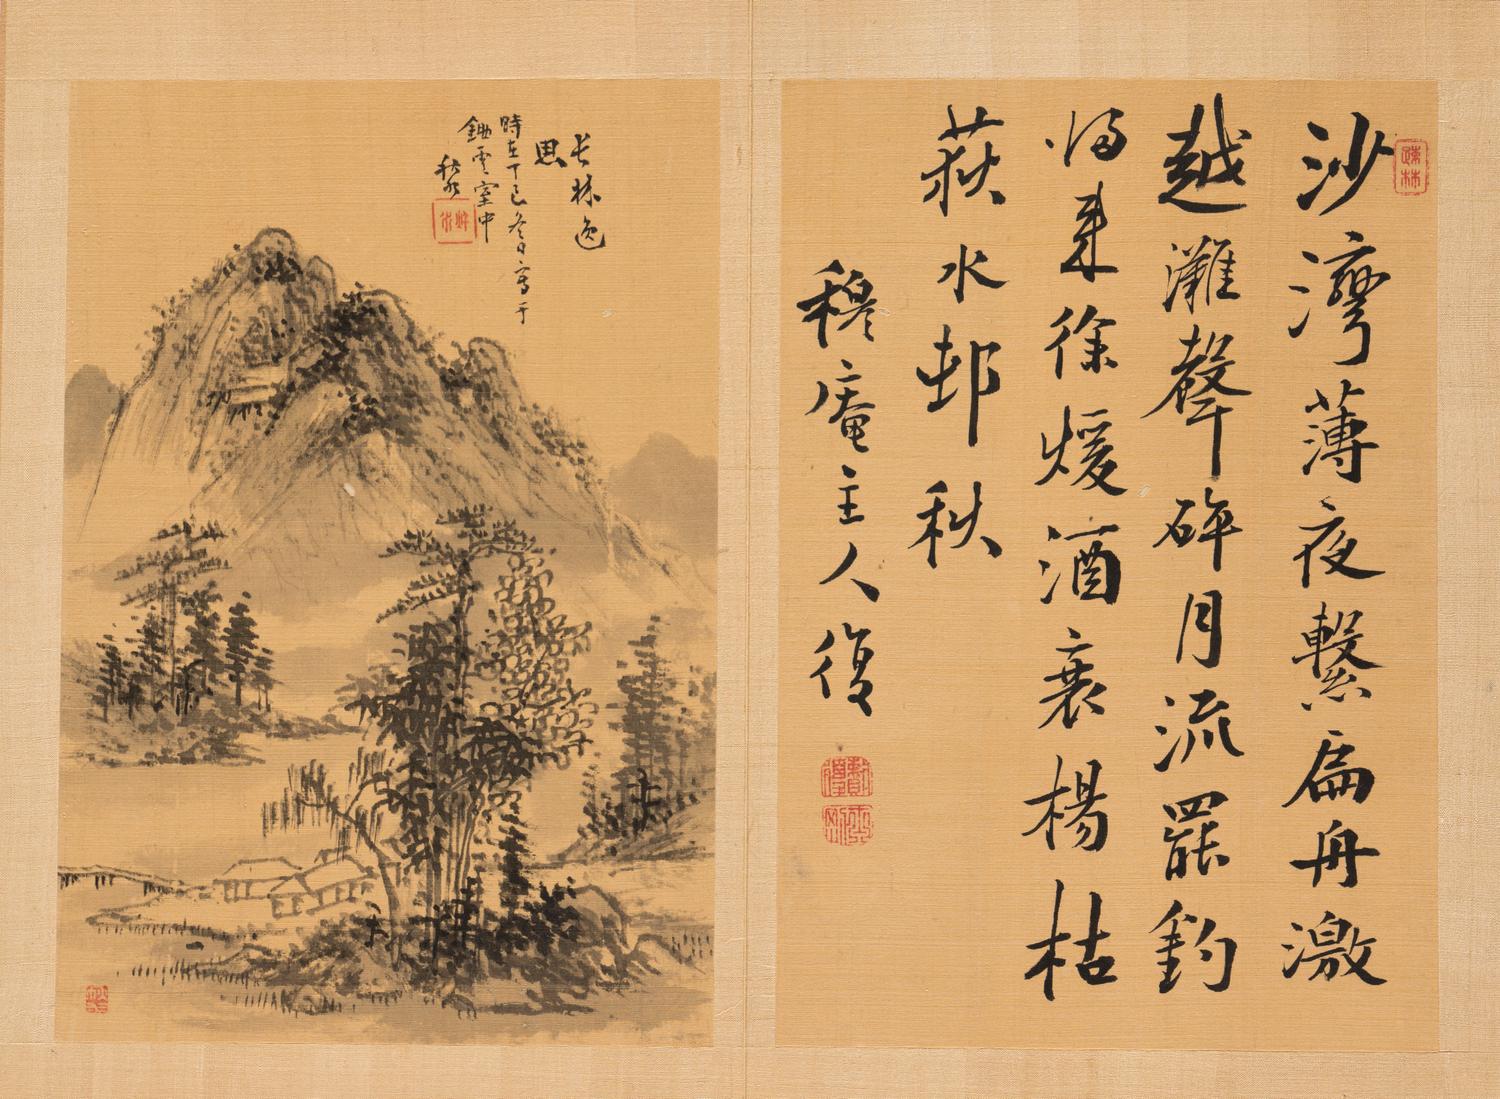 沙灣薄夜繫扁舟激
越灘聲碎月流罷釣
歸来徐煖酒衰楊枯
荻水邨秋
穆庵主人復
疎林
長林逸
思
時在丁巳冬日寫于
鋤雲室中